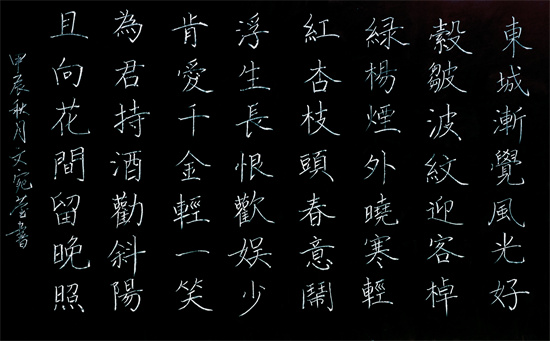 東城漸覺風光好
縠皺波紋迎客棹
綠楊煙外曉寒輕
紅杏枝頭春意鬧
浮生長恨歡娛少
肯愛千金輕一笑
為君持酒勸斜陽
且向花間留晚照
甲辰秋月文宛莹書